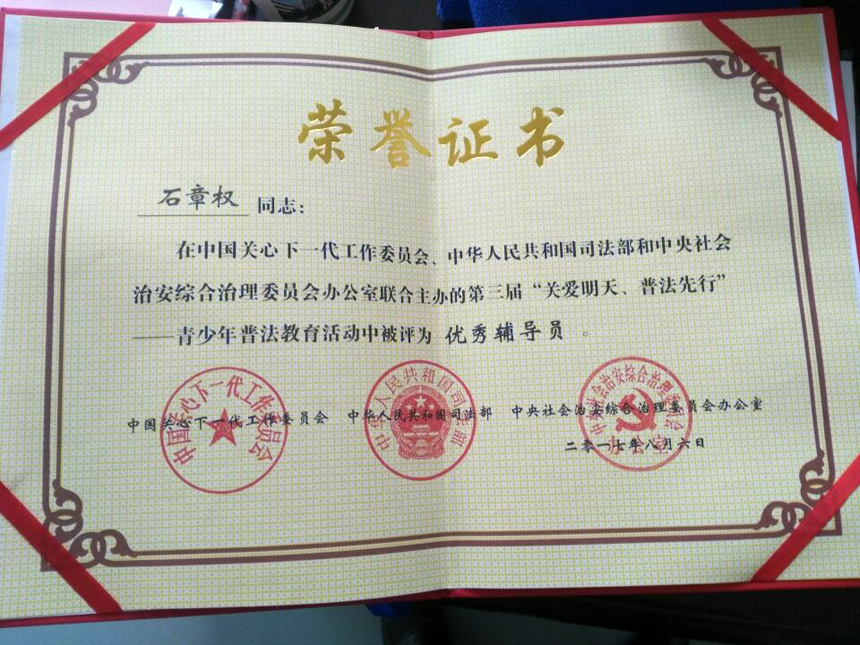 荣誉证书
石章权 同志：
在中国关心下一代工作委员会、中华人民共和国司法部和中央社会
治安综合治理委员会办公室联合主办的第三届“关爱明天、普法先行”
——青少年普法教育活动中被评为 优秀辅导员 。
中国关心下一代工作委员会 中华人民共和国司法部 中央社会治安综合治理委员会办公室
二零一七年八月六日
中国关心下一代工作委员会
中华人民共和国司法部
中央社会治安综合治理委员会
办公室